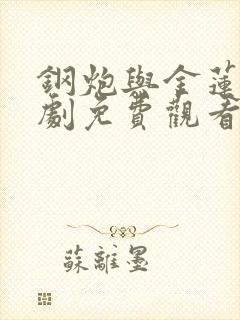 鋼炮與金蓮
劇免費觀看
蘇離墨